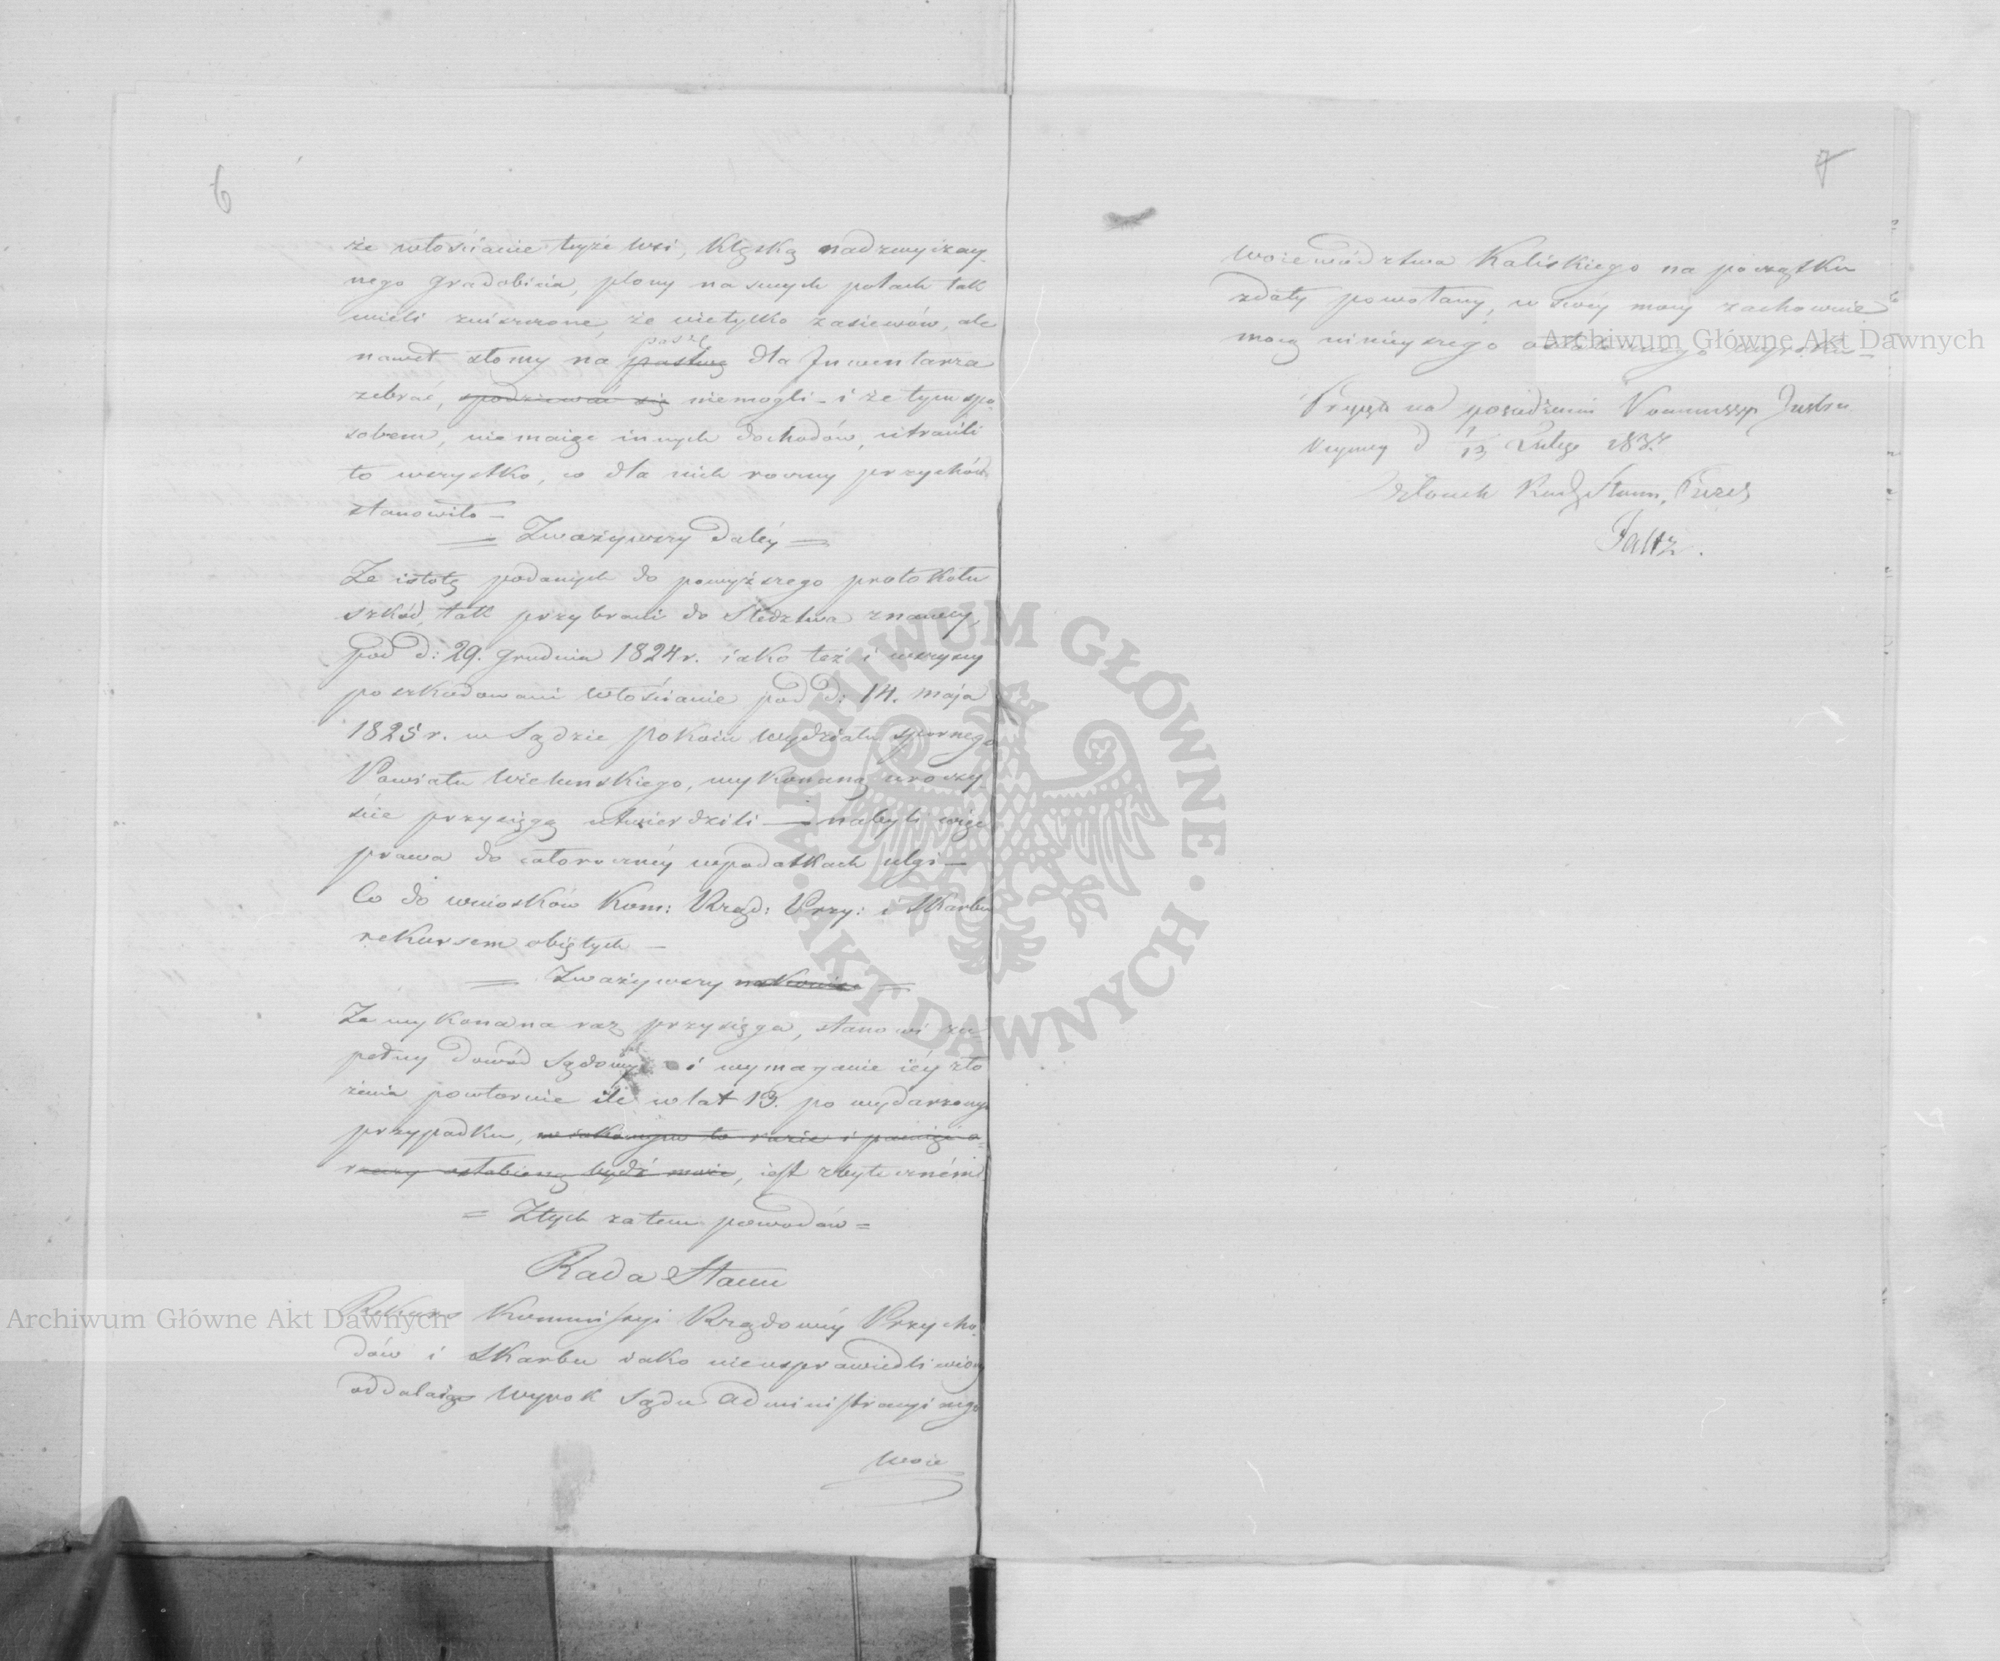 6
że włościanie teyże wsi, klęską nadzwyczay-
nego gradobicia, plony na swych polach tak
mieli zniszczone, że nietylko zasiewów, ale
paszę
nawet słomy na pastwę dla Inwentarza
zebrać, spodziewać się niemogli – i że tym spo-
sobem, nie maiąc innych dochodów, utracili
to wszystko, co dla nich roczny przychód
stanowiło –
= Zważywszy daléy =
Że istotę podanych do powyższego protokołu
szkód, tak przybrani do Śledztwa znawcy,
pod d: 29. Grudnia 1824 r. iako też i wszyscy
poszkodowani włościanie pod d: 14. maja
1825 r. w Sądzie pokoiu wydziału spornego
Powiatu Wieluńskiego, wykonaną uroczy-
ście przysięgą utwierdzili – nabyli więc
prawa do całorocznéy w podatkach ulgi –
Co do wniosków Kom: Rząd: Przy: i Skarbu
rekursem obiętych –
= Zważywszy nakoniec =
Że wykonana raz przysięga, stanowi zu-
pełny dowód Sądowy i wymaganie iéy zło
żenia powtórnie w lat 13. po wydarzonym
przypadku, w iakowym to razie i pamięć o
rzeczy osłabioną bydź może, iest zbyteczném
= Z tych zatem powodów =
Rada Stanu
Rekurs Kommissyi Rządowéy Przycho-
dów i Skarbu iako nieusprawiedliwiony
oddalaiąc Wyrok Sądu Administracyinego
Woie
7
Woiewództwa Kaliskiego na początku
zdaty powołany, w swéy mocy zachowuie
mocą ninieyszego ostatecznego wyroku –
na posiedzeniu Kommissyi Instru
kcyiney d 1/13 Lutego
Członek Rady Stanu, Prezes
Faltz.
Archiwum Główne Akt Dawnych
Archiwum Główne Akt Dawnych
ARCHIWUM GŁÓWNE · AKT DAWNYCH ·